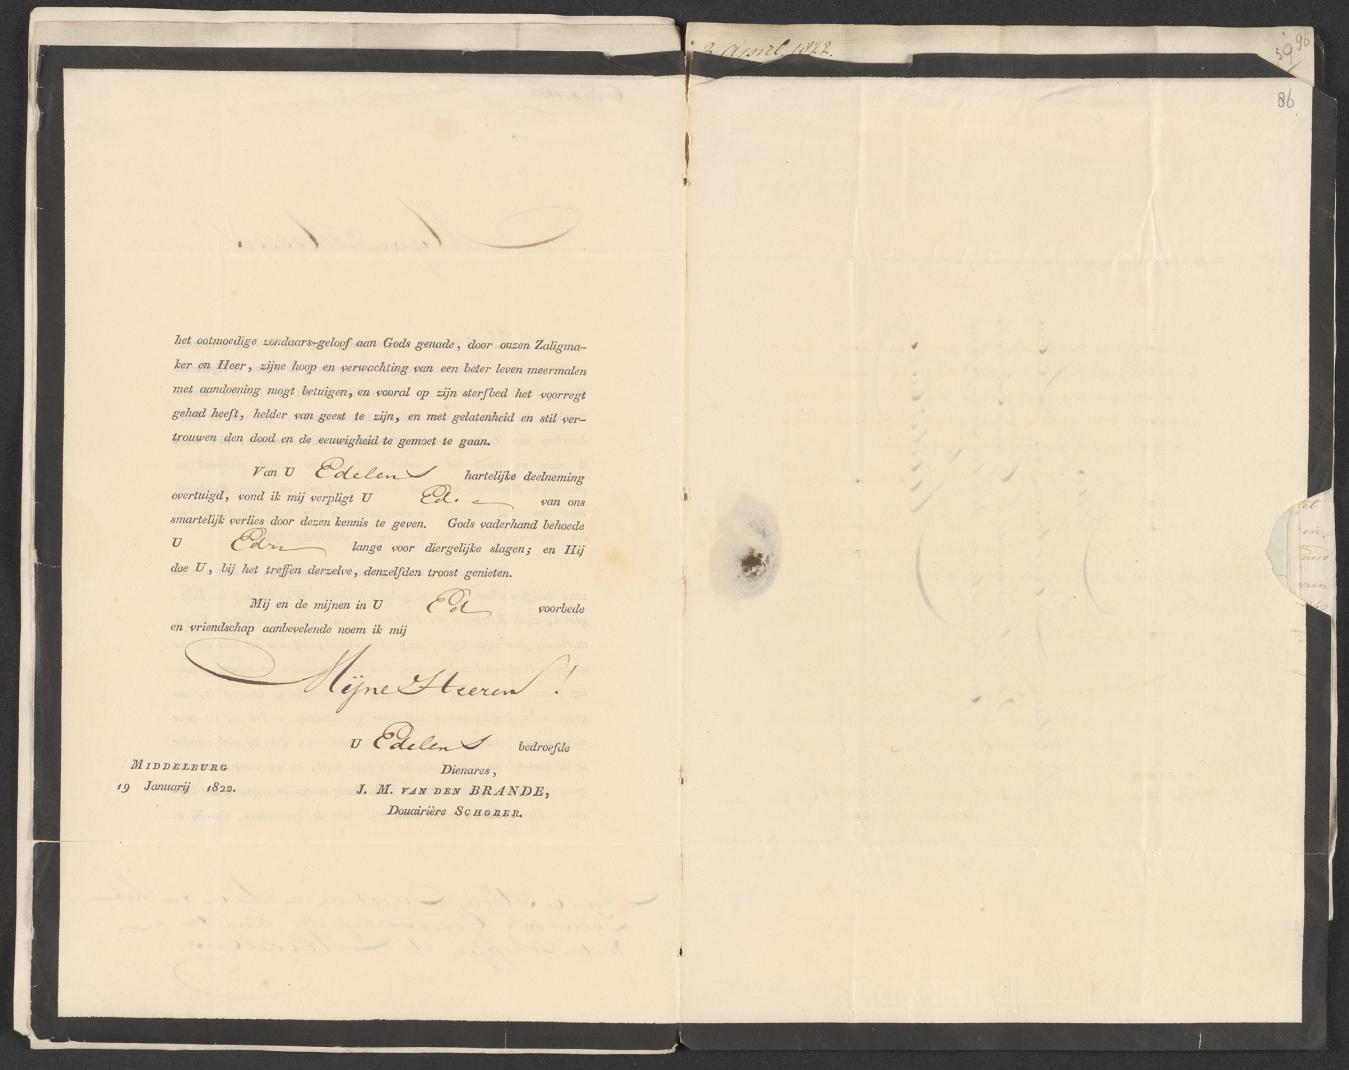 het ootmoedige zondaars-geloof aan Gods genade, door onzen Zaligma-
ker en Heer, zijne hoop en verwachting van een beter leven meermalen
met aandoening mogt betuigen, en vooral op zijn sterfbed het voorregt
gehad heeft, helder van geest te zijn, en met gelatenheid en stil ver-
trouwen den dood en de eeuwigheid te gemoet te gaan.
Van U Edelens hartelijke deelneming
overtuigd, vond ik mij verpligt U Ed. van ons
smartelijk verlies door dezen kennis te geven. Gods vaderhand behoede
U Edn lange voor diergelijke slagen; en Hij
doe U, bij het treffen derzelve, denzelfden troost genieten.
Mij en de mijnen in U Ed voorbede
en vriendschap aanbevelende noem ik mij
Mijne Heeren!
U Edelens bedroefde
Dienares,
J. M. VAN DEN BRANDE,
Douairière SCHORER.
MIDDELBURG
19 Januarij 1822.
3 April 1822.
96
59
86